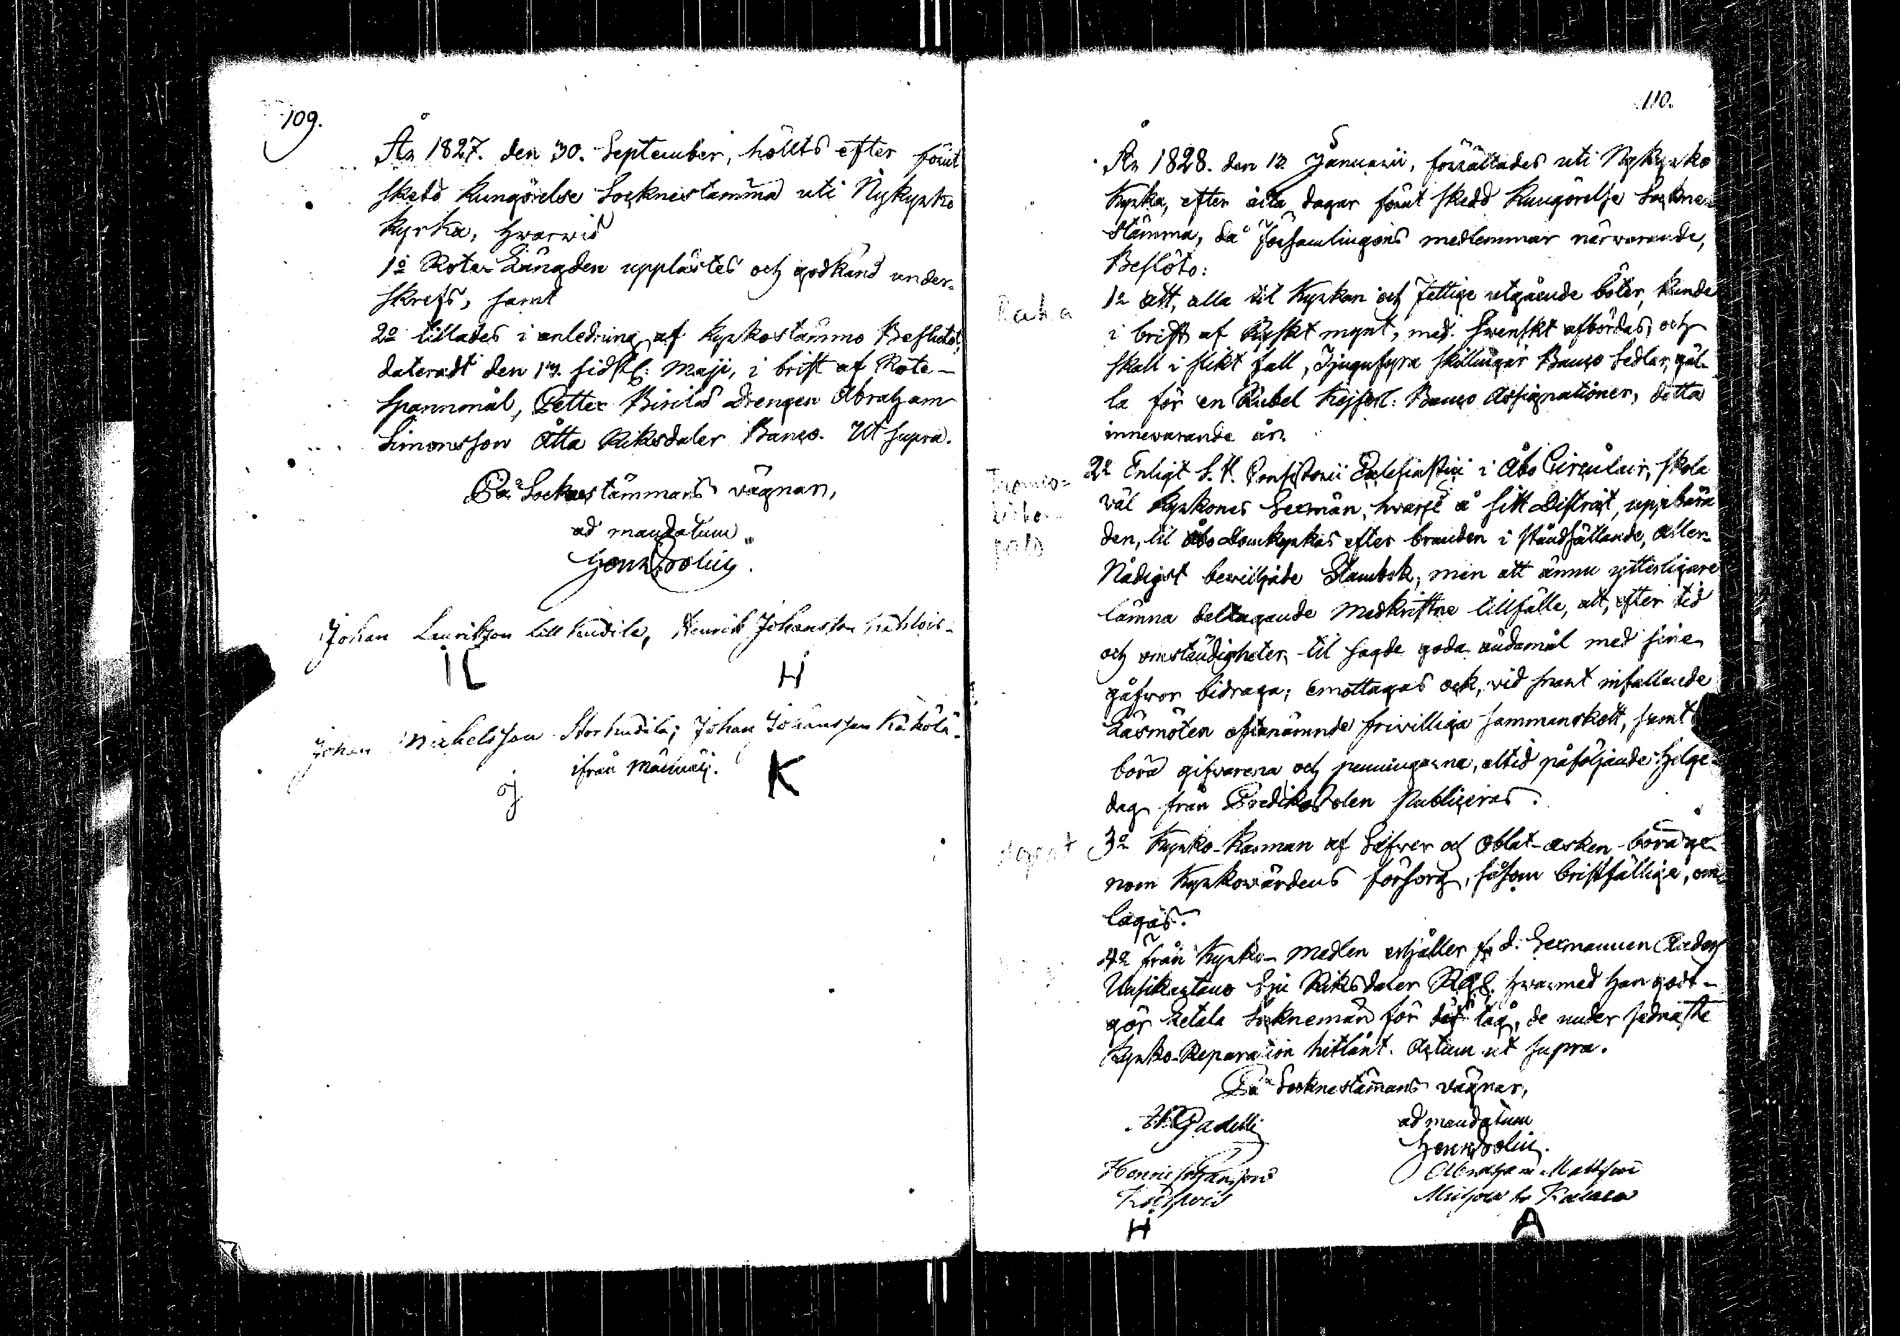 109.
År 1827. den 30. September, höllts efter förut
skedd kungörelse Socknestämma uti Nykyrko
kyrka, hwarwid
1º Rote Längden upplästes och godkänd under-
skrefs, samt
2º tillades i anledning af kyrkostämmo Beslutet,
dateradt den 13. sidstl: Maji, i brist af Rote-
Spannmål, Petter Birilas drengen Abraham
Simonsson Åtta Riksdaler Banco. Ut supra.
På Socknestämmans vägnar,
ad mandatum
Johan Lauriksson Lill Hudila, Henrik Johansson
IL H
Johan Mickelsson Storhudila, Johan Johansson Kåkola
ifrån
K
110.
År 1828. den 13. Januarii, förrättades uti Nykyrko
Kyrka, efter åtta dagar förut skedd kungörelse Sockne-
Stämma, då Församlingens medlemmar närvarande,
Beslöto:
1º att, alla til Kyrkan och Fattige utgående böter, kunde
i brist af Ryskt mynt, med Swenskt afbördas, och
skall i slikt fall, Tjugufyra skillingar Banco Sedlar, gäl-
la för en Rubel Kejserl: Banco Assignationer, detta
innevarande år.
2º Enligt S. V. Consistorii Ecclesiastici i Åbo Circulair, skola
väl Kyrkones Sexmän, hwarje å sitt District, uppbära
den, til Åbo Domkyrkas efter branden i ståndsättande, Aller-
Nådigst beviljade Stambok; men att ännu ytterligare
lämna deltagande Medkristne tillfälle, att, efter tid
och omständigheter, til sagde goda ändamål med sine
gåfvor bidraga; emottagas ock, vid snart infallande
Läsmöten oftanämnde frivilliga sammanskott, samt
böra gifvarena och penningarne, altid påföljande Helge-
dag från Predikostolen Publiceras.
3º Kyrko-Kannan af Silfver och Oblat-asken böra ge-
nom Kyrkowärdens försorg, såsom bristfällige, om-
lagas.
4º från Kyrko-Medlen erhåller f. d. Sexmannen Anders
Uusikartano Sju Riksdaler Rgs. hwarmed han godt-
gör Letala Sockneman för det tåg, de under sednaste
Kyrko-Reparation hitlånt. Actum ut supra.
På Socknestämans vägnar,
ad mandatum
Abraham Mattsson
H A